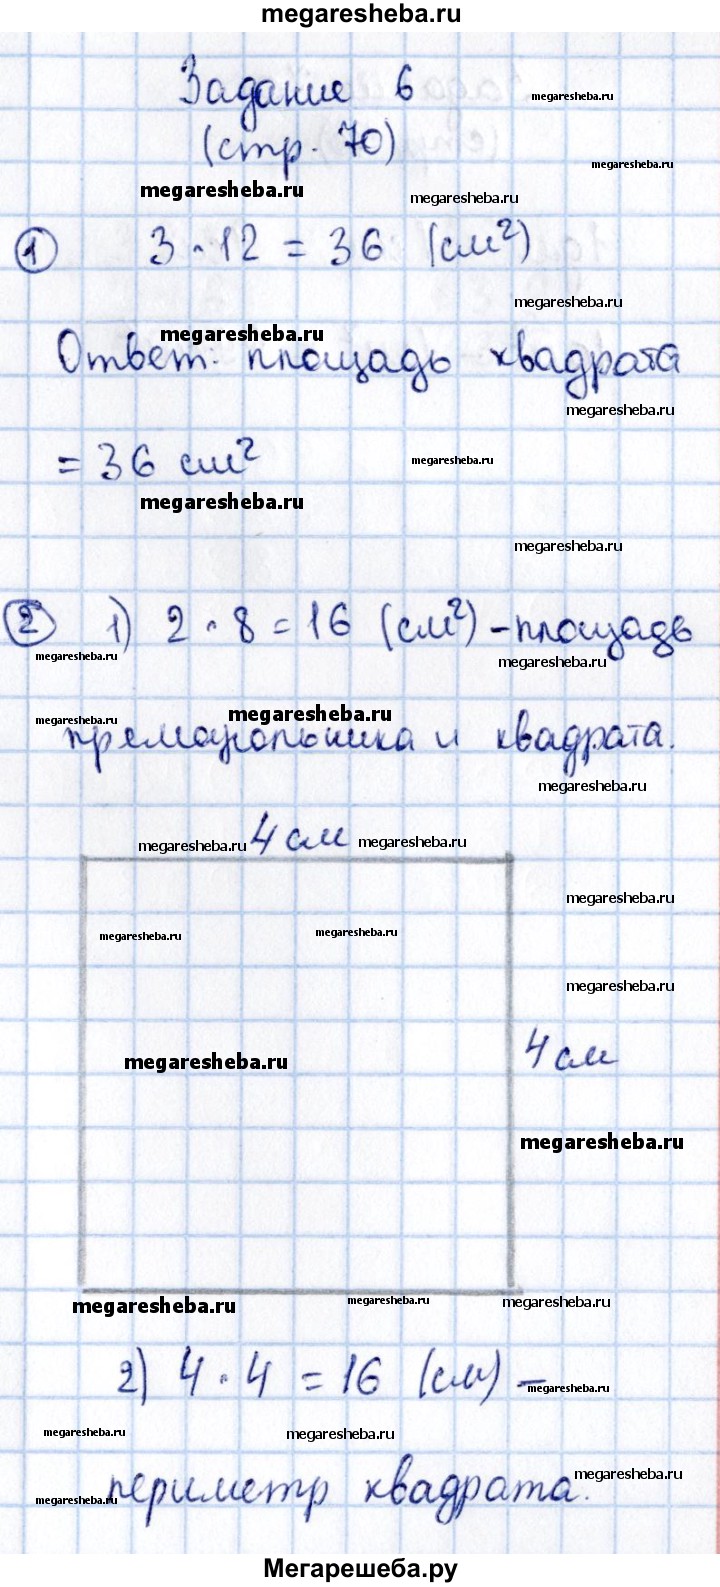 megaresheba.ru
Задание 6
megaresheba.ru
(стр. 70)
megaresheba.ru
megaresheba.ru
megaresheba.ru
1 3 · 12 = 36 (см²)
megaresheba.ru
megaresheba.ru
Ответ: площадь квадрата
megaresheba.ru
= 36 см²
megaresheba.ru
megaresheba.ru
megaresheba.ru
2 1) 2 · 8 = 16 (см²) - площадь
megaresheba.ru
megaresheba.ru
megaresheba.ru
megaresheba.ru
прямоугольника и квадрата.
megaresheba.ru
4 см
megaresheba.ru
megaresheba.ru
megaresheba.ru
megaresheba.ru
megaresheba.ru
megaresheba.ru
4 см
megaresheba.ru
megaresheba.ru
megaresheba.ru
megaresheba.ru
megaresheba.ru
2) 4 · 4 = 16 (см) -
megaresheba.ru
megaresheba.ru
megaresheba.ru
megaresheba.ru
периметр квадрата.
megaresheba.ru
Мегарешеба.ру